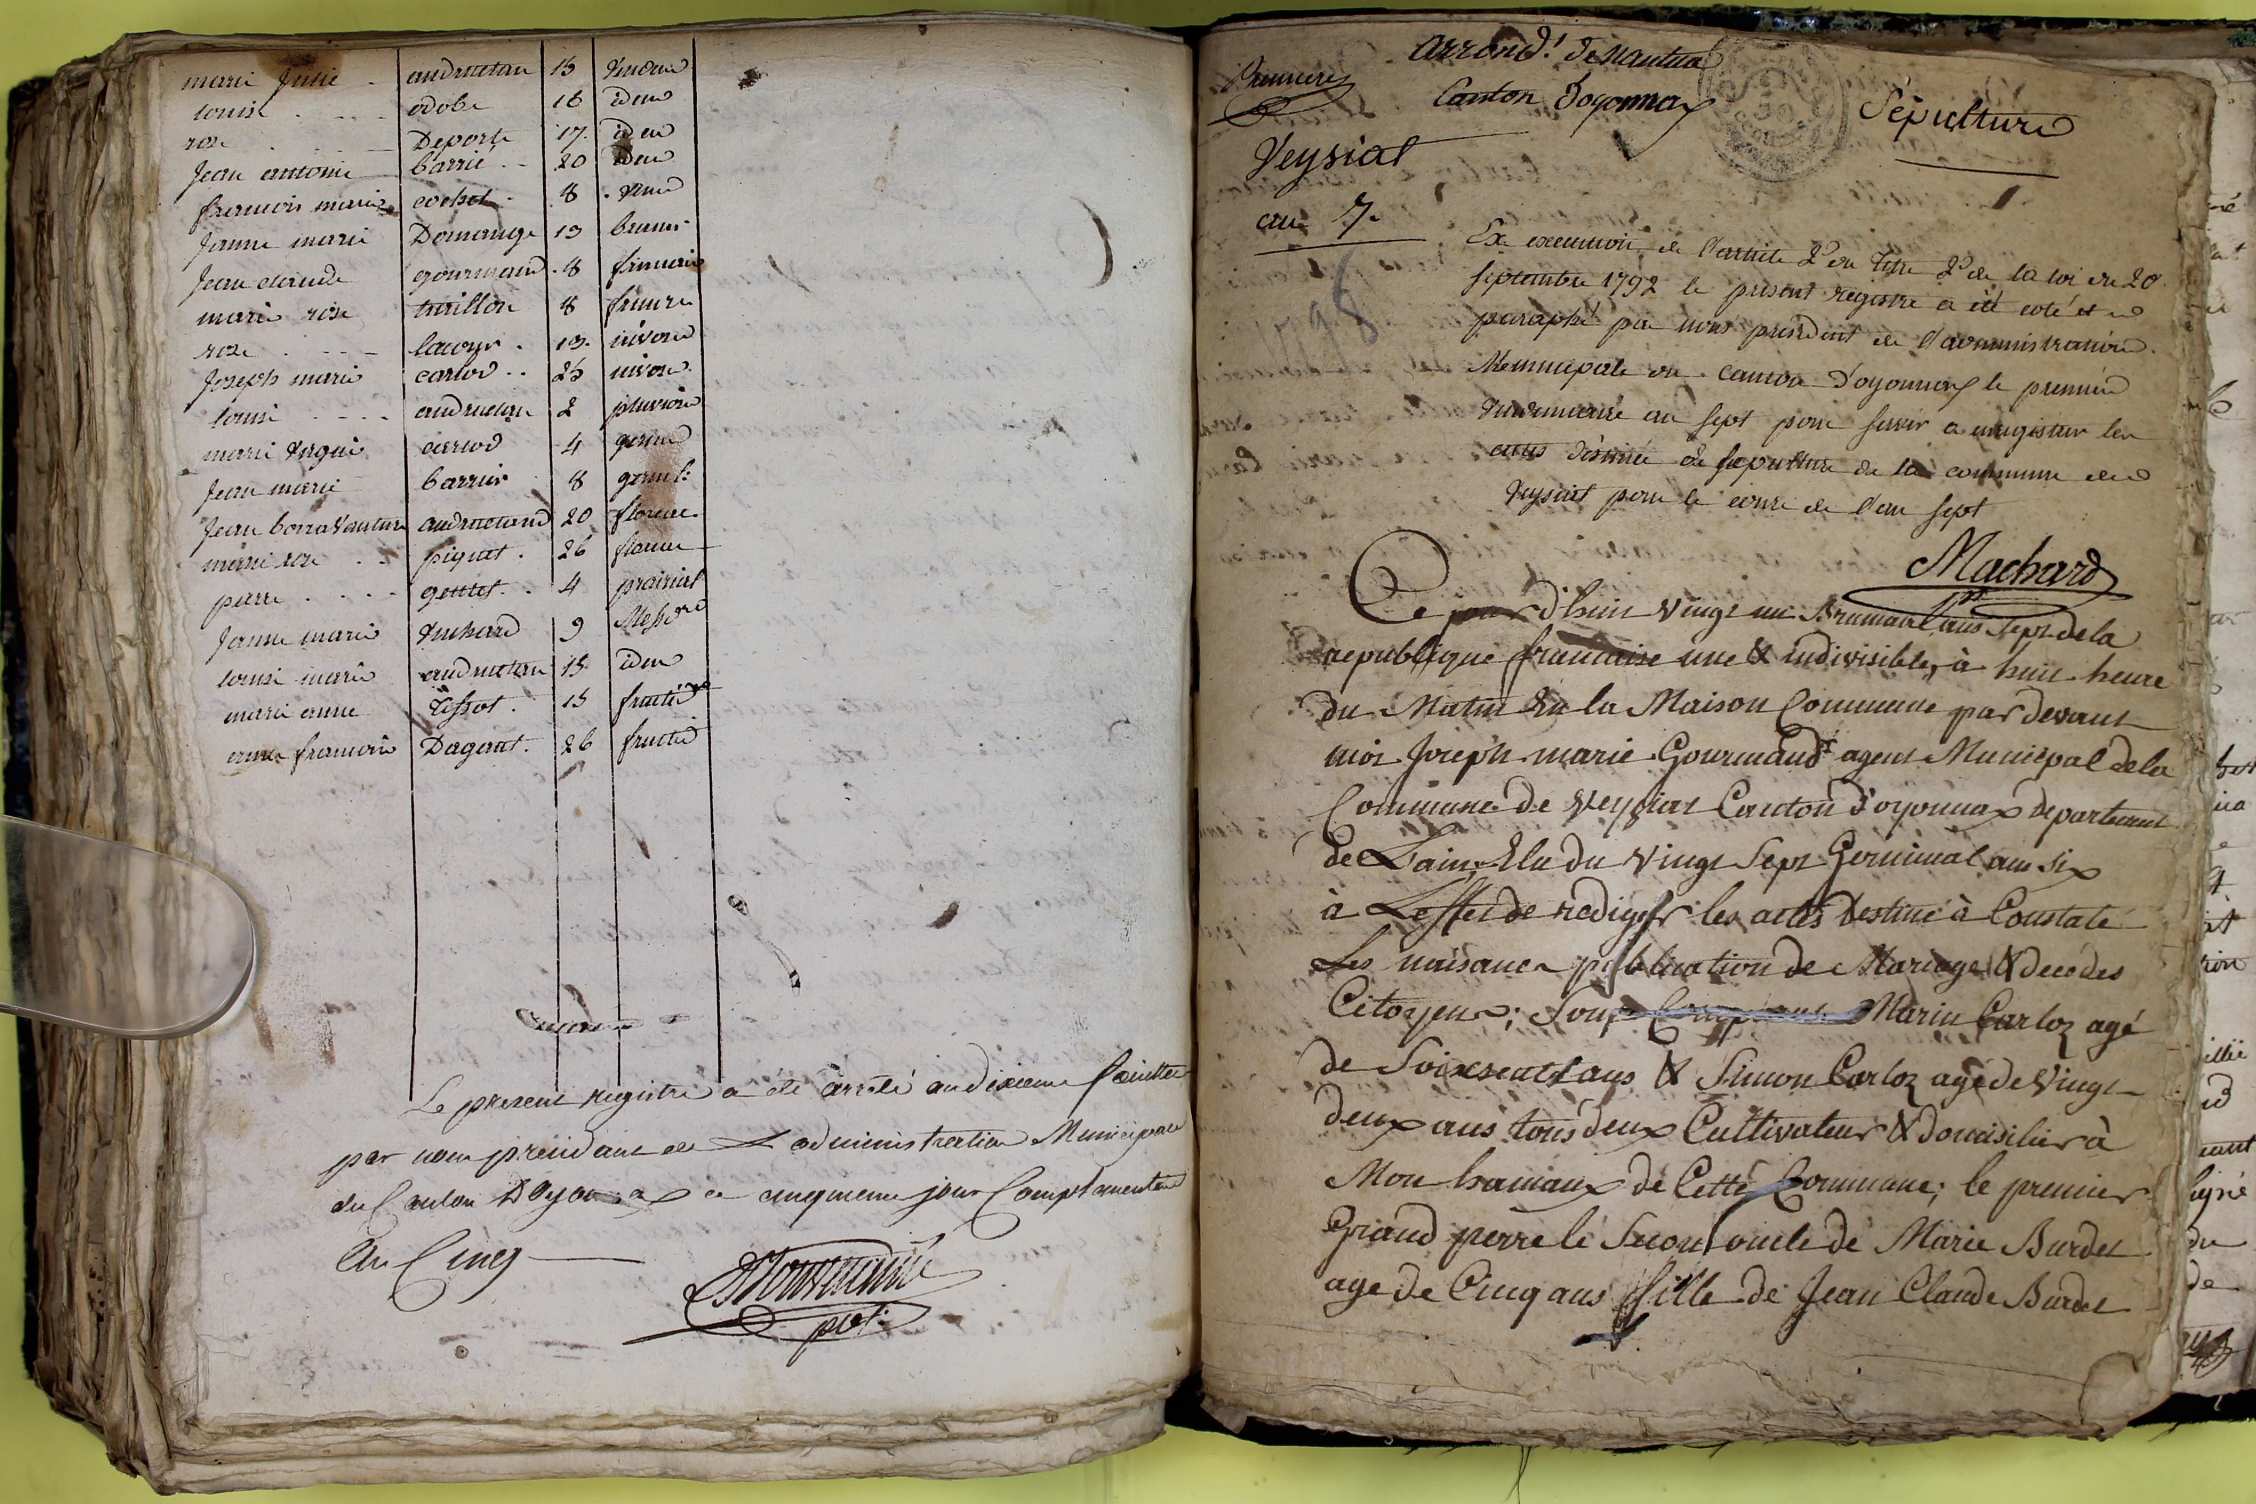 marie Julie andruetan 15 vendem
louise odobe 16 idem
rose Deporte 17 idem
Jean antoine barrié 20 idem
francois marie cochet 8
Jeanne marie Domange 13 brum
Jean claude gourmand 8 frimair
marie rose tuvillon 8 frimre
rose lacroix 13 nivose
Joseph marie carlod 25 nivose
louise andruetan 2 pluviose
marie carlod 4 germ
Jean marie barrier 8 germl
Jean bonnavanture andruetand 20 floreal
marie rose piquet 26 floreal
pierre gouttet 4 prairial
Jeanne marie vuchard 9 Messor
louise marie andruetan 15 idem
marie anne tissot 15 fructid
anne francoise Dagout 26 fructid
Le present registre a été arrêté au dixieme feuillet
par nous president de L administration Municipale
du Canton D'Oyonnax ce cinquieme jour Complementaire
An Cinq
pdt
arrond.t de nantua
premiere
Canton d'oyonnax
Sépulture
Veysiat
an 7.
98
En execution de l'article 2e du titre 2e de la loi du 20
septembre 1792 le present registre a été coté et
paraphé par nous president de l'administration
Municipale du canton d'oyonnax le premier
vendemiaire an sept pour servir a enregistrer les
actes destinés de sepulture de la commune de
Veysiat pour le cours de l'an sept
Machard
pt
Ce jour d'huit vingt un Brumaire ans sept de la
republique francaise une & indivisible, à huit heure
du Matin En la Maison Commune par devant
moi Joseph marie Gourmand agent Municipal de la
Commune de Veysiat Canton d'oyonnax departement
de L'ain, Elu du vingt Sept Germinal ans Six
à Leffet de rediger les actes destiné à Constaté
Les naisance publication de Mariage & decé des
Citoyens; Sont Comparus Marin Carloz agé
de Soixsente ans & Simon Carloz agé de vingt
deux ans tous deux Cultivateur & domisilier à
Mon hamaux de Cette Commune; le premier
Grand perre le Secont oncle de Marie Burdet
age de Cinq ans fille de Jean Claude Burdet